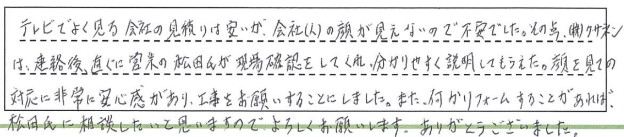 テレビでよく見る会社の見積りは安いが、会社(人)の顔が見えないので不安でした。その点、(株)クサネン
は、連絡後、直ぐに営業の松田氏が現場確認をしてくれ、分かりやすく説明してもらえた。顔を見ての
対応に非常に安心感があり、工事をお願いすることにしました。また、何かリフォームすることがあれば、
松田氏に相談したいと思いますのでよろしくお願いします。ありがとうございました。